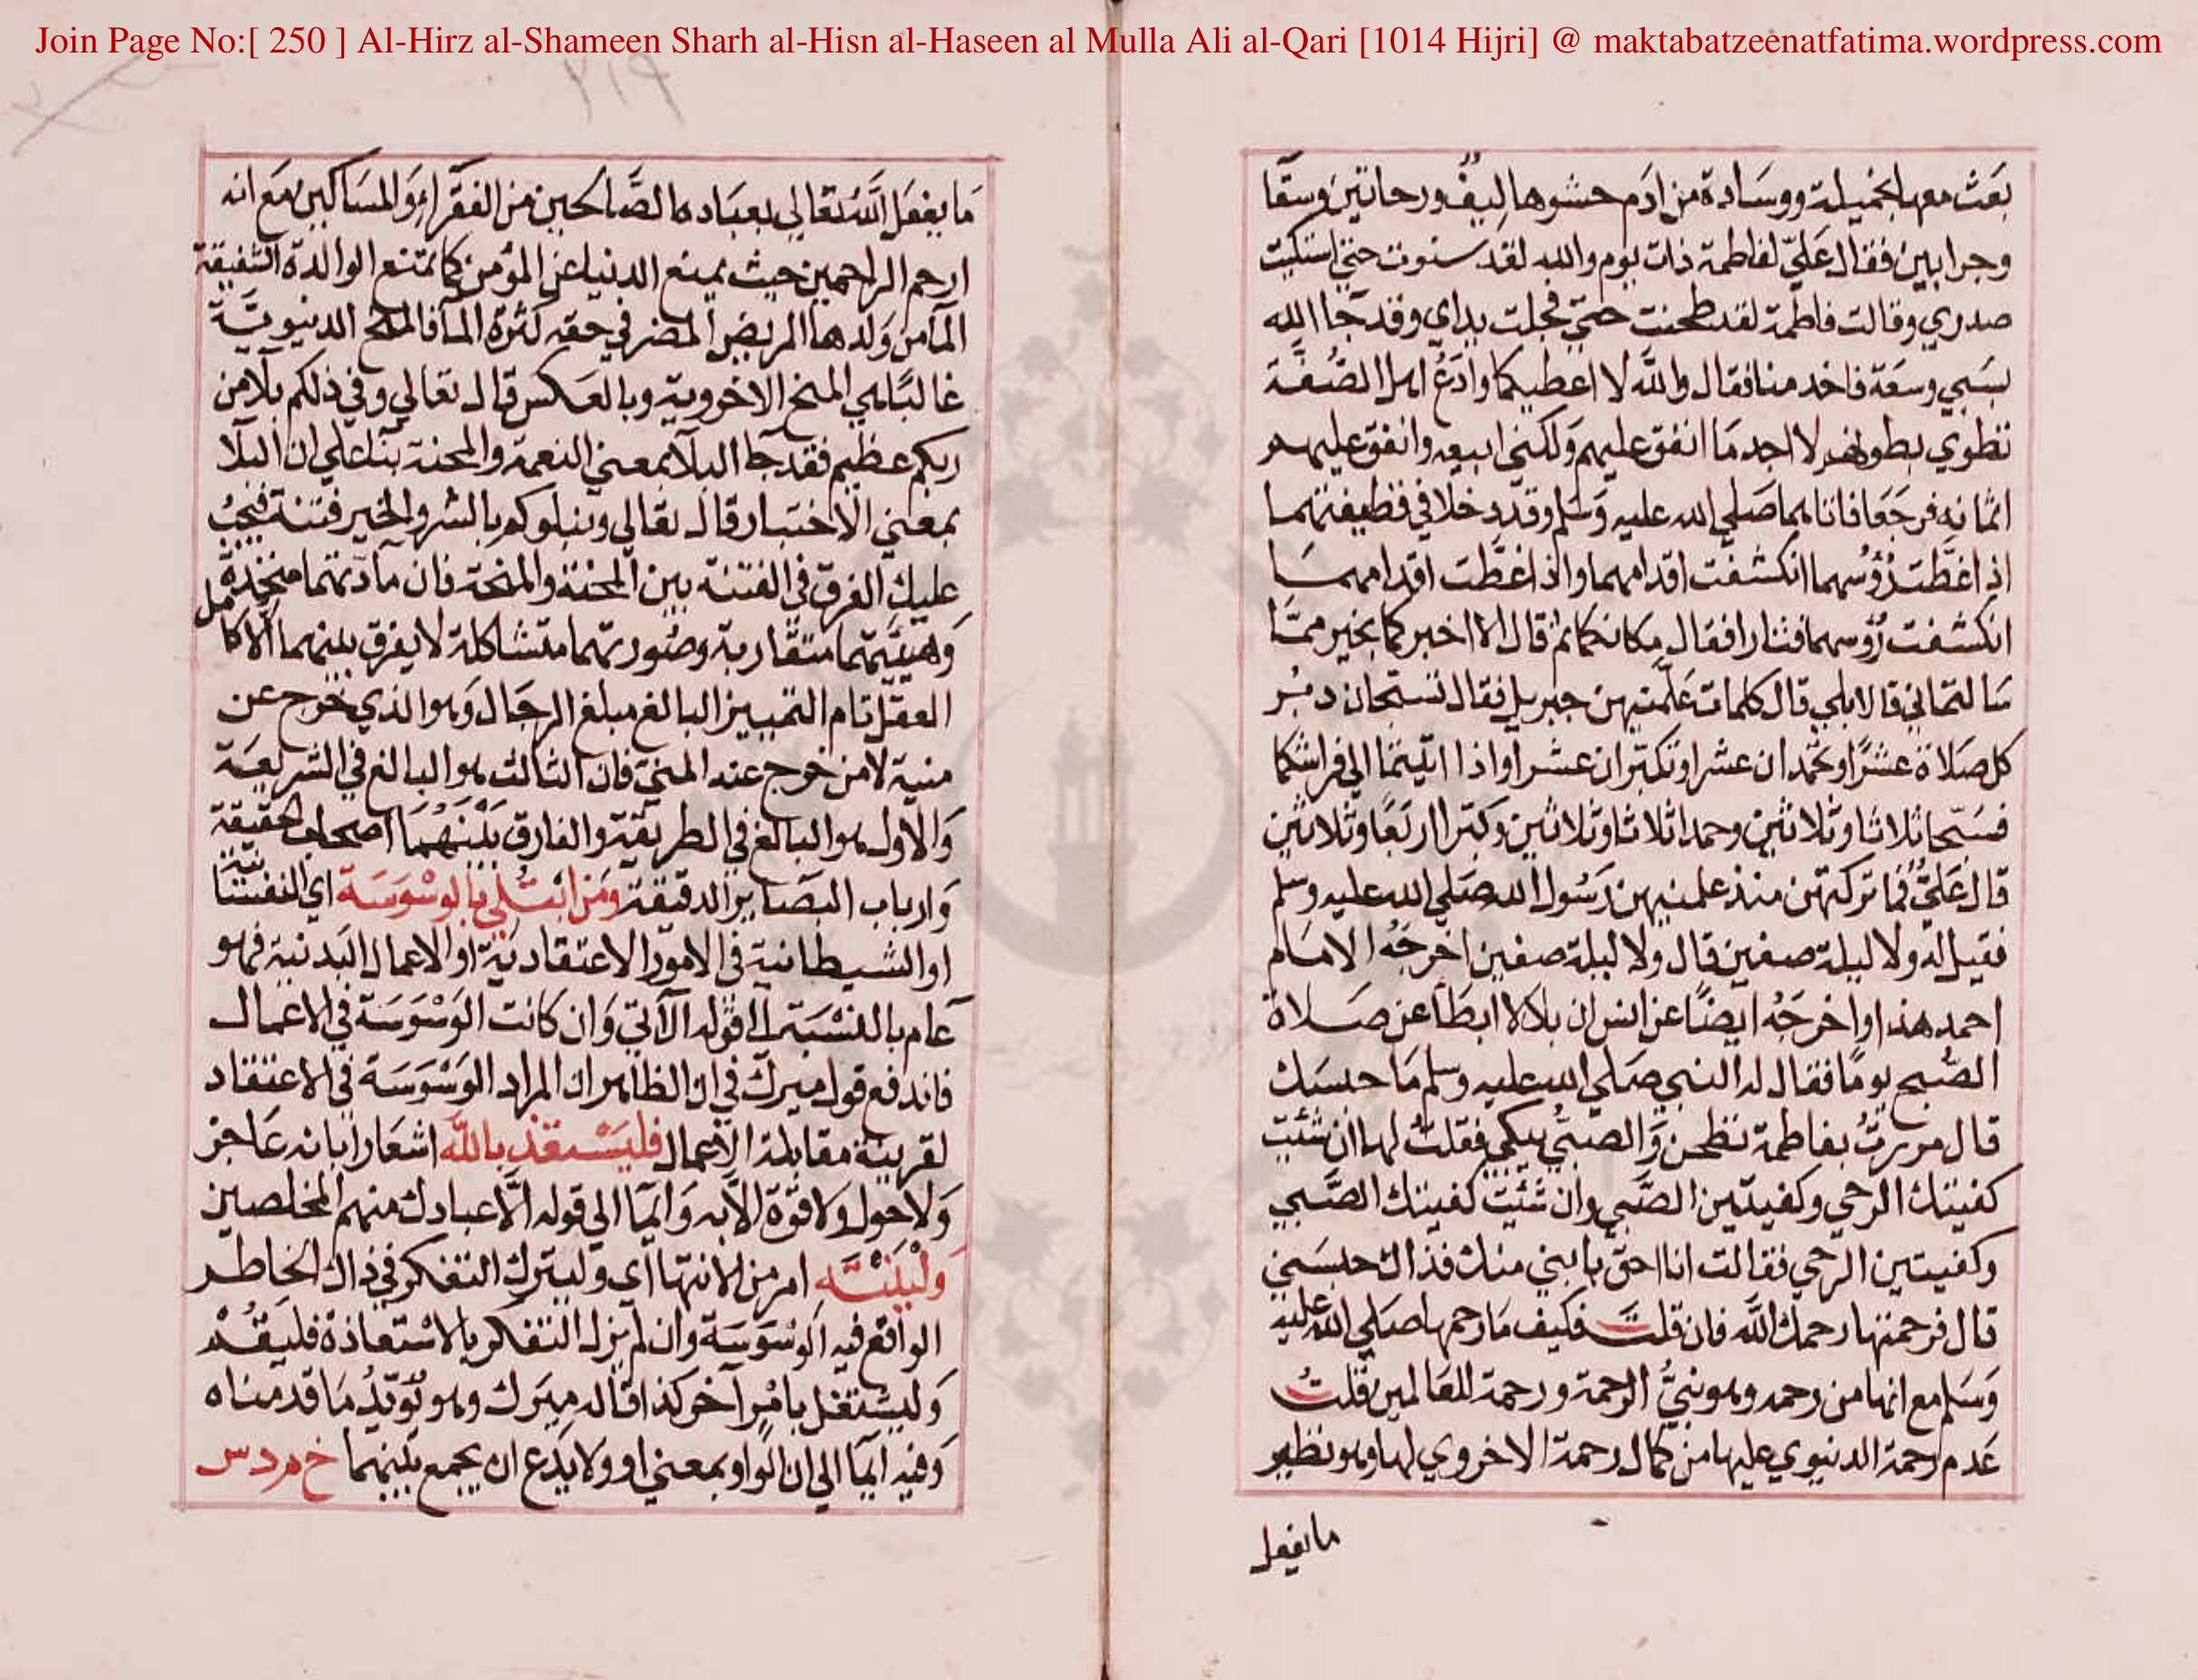 Join Page No:[ 250 ] Al-Hirz al-Shameen Sharh al-Hisn al-Haseen al Mulla Ali al-Qari [1014 Hijri] @ maktabatzeenatfatima.wordpress.com
٢١٩
بعَث معها بخميلة ووسَادة من ادَم حشوها ليف ورحاتين وسقا
وجرابين فقال عَليّ لفاطمة ذات يوم والله لقد سنوت حتي اشتكيت
صدري وقالت فاطمة لقد طحنت حتيّ مجلت يداي وقد جَا الله
بسَبي وسعَة فاخدمنا فقال والله لا اعطيكما وادَعُ اهل الصُّفَّة
تطوي بطونهم لا اجد مَا انفق عليهم وَلكني ابيعه وانفق عليهم
اثمانه فرجَعَا فاتاهما صَلي الله عليه وَسَلم وقد دخلا في قطيفتهما
اذا غطَّت رؤسُهما انكشفت اقدامهما واذا غطَّت اقدامهمَا
انكشفت رؤسهما فثارا فقال مكانكما ثم قال الا اخبركما بخير ممَّا
سَالتماني قالا بلي قال كلمات عَلَّمنيهن جبريل فقال تسبحان دبُر
كل صَلاة عشرًا وتحمدان عشرا وتكبّران عشرا واذا اتيتما الي فراشكما
فسَبّحا ثلاثا وثلاثين وحمدا ثلاثا وثلاثين وكبّرا اربَعًا وثلاثين
قال عَليٌّ فما تركتهن منذ علمنيهن رَسُول الله صَلي الله عليه وسلم
فقيل له ولا ليلة صفين قال ولا ليلة صفين اخرجَهُ الامَام
احمد هذا واخرجَهُ ايضًا عن انس ان بلالا ابطَأ عن صَلاة
الصُّبح يومًا فقال له النبي صَلي الله عليه وسلم مَا حبسَك
قال مررتُ بفاطمة تطحن وَالصبيُّ يبكي فقلتُ لها ان شئتِ
كفيتك الرحي وكفيتين الصَّبي وان شئتِ كفيتك الصَّبي
وكفيتين الرحي فقالت انا احق بابني منك فذاك حبسَني
قال فرحمتها رحمك الله فان قلت فكيف مَا رحمها صَلي الله عليه
وَسَلم مع انها من رحمه وهو نبيُّ الرحمة ورحمة للعَالمين قلتُ
عَدم رحمة الدنيوي عليها من كمال رحمة الاخروي لها وهو نظير
مايفعل
مَا يفعَل الله تعَالي بعبَاده الصَّالحين من الفقرَاء وَالمسَاكين مَع انه
ارحم الراحمين حيث يمنع الدنيا عن المؤمن كما تمنع الوالدة الشفيقة
المآ من وَلدها المريض المضر في حقه كثرة المآ فالمنح الدنيويَّة
غالبًا هي المنح الاخروية وبالعَكس قال تعَالي وفي ذلكم بلآ من
ربكم عظيم فقد جَا البلآ بمعني النعمة والمحنة بنآ علي ان البلآ
بمعني الاختبار قال تعَالي ونبلوكم بالشر والخير فتنة فيجبُ
عليك الفرق في الفتنة بين المحنة والمنحة فان مآدتهما متخذة
وَهيئتهما متقاربة وصُورتهما متشاكلة لا يفرق بينهما الا كامل
العقل تام التمييز البالغ مبلغ الرجَال وَهو الذي خرج عن
منية لا من خرج عنه المني فان الثالث هو البالغ في الشريعَة
وَالاول هو البالغ في الطريقة والفارق بَيْنَهُمَا اصحاب الحقيقة
وَارباب البَصَاير الدقيقة ومَن ابتُلي بالوسْوَسَة اي النفسَانية
او الشيطانية في الامور الاعتقادية او الاعمال البَدنية فهو
عَام بالنسْبَة الي قوله الآتي وَان كانت الوَسْوَسَة في الاعمال
فاندفع قول ميرك في ان الظاهر ان المراد الوَسْوَسَة في الاعتقاد
لقرينة مقابلة الاعمال فليَسْتعذ بالله اشعَارا بانه عَاجز
وَلا حول وَلا قوّة الا به وَايمآ الي قوله الَّا عبادك منهم المخلصين
وَلْيَنْتَهِ امر من الانتهآ اي وليترك التفكر في ذاك الخاطر
الواقع فيه الوَسْوَسَة وان لم يزل التفكر بالاسْتعاذة فليَقُمْ
وَليشتغل بامْرٍ آخر كذا قاله ميرك وهو يُؤيّد مَا قدمناه
وَفيه ايمآ الي ان الوَاو بمعني او وَلا يَدَع ان يجمع بينهما خ م د س